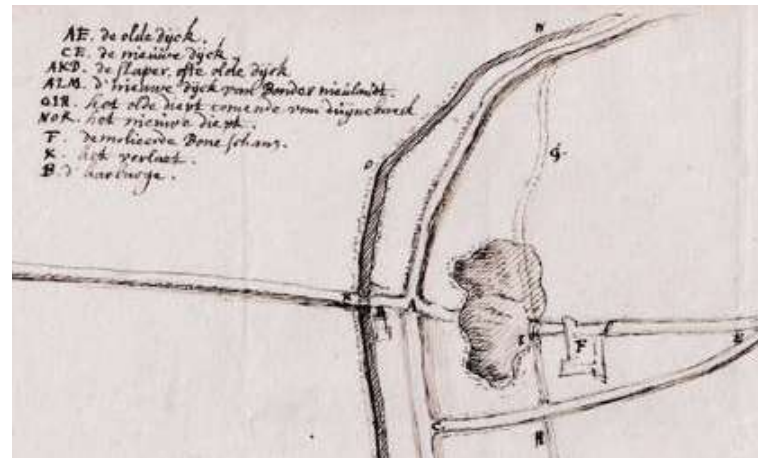 AE. de olde dyck.
CE. de nieüwe dyck
AKD. de slaper, ofte olde dyck
ALM. d'nieuwe dyck van Bonder nieülandt.
GIR. het olde diept comende van
NOR. het nieuwe diept.
F. demolieerde Bone schans.
K. het verlaet.
B. d'
N
O
G
K
I
F
E
C